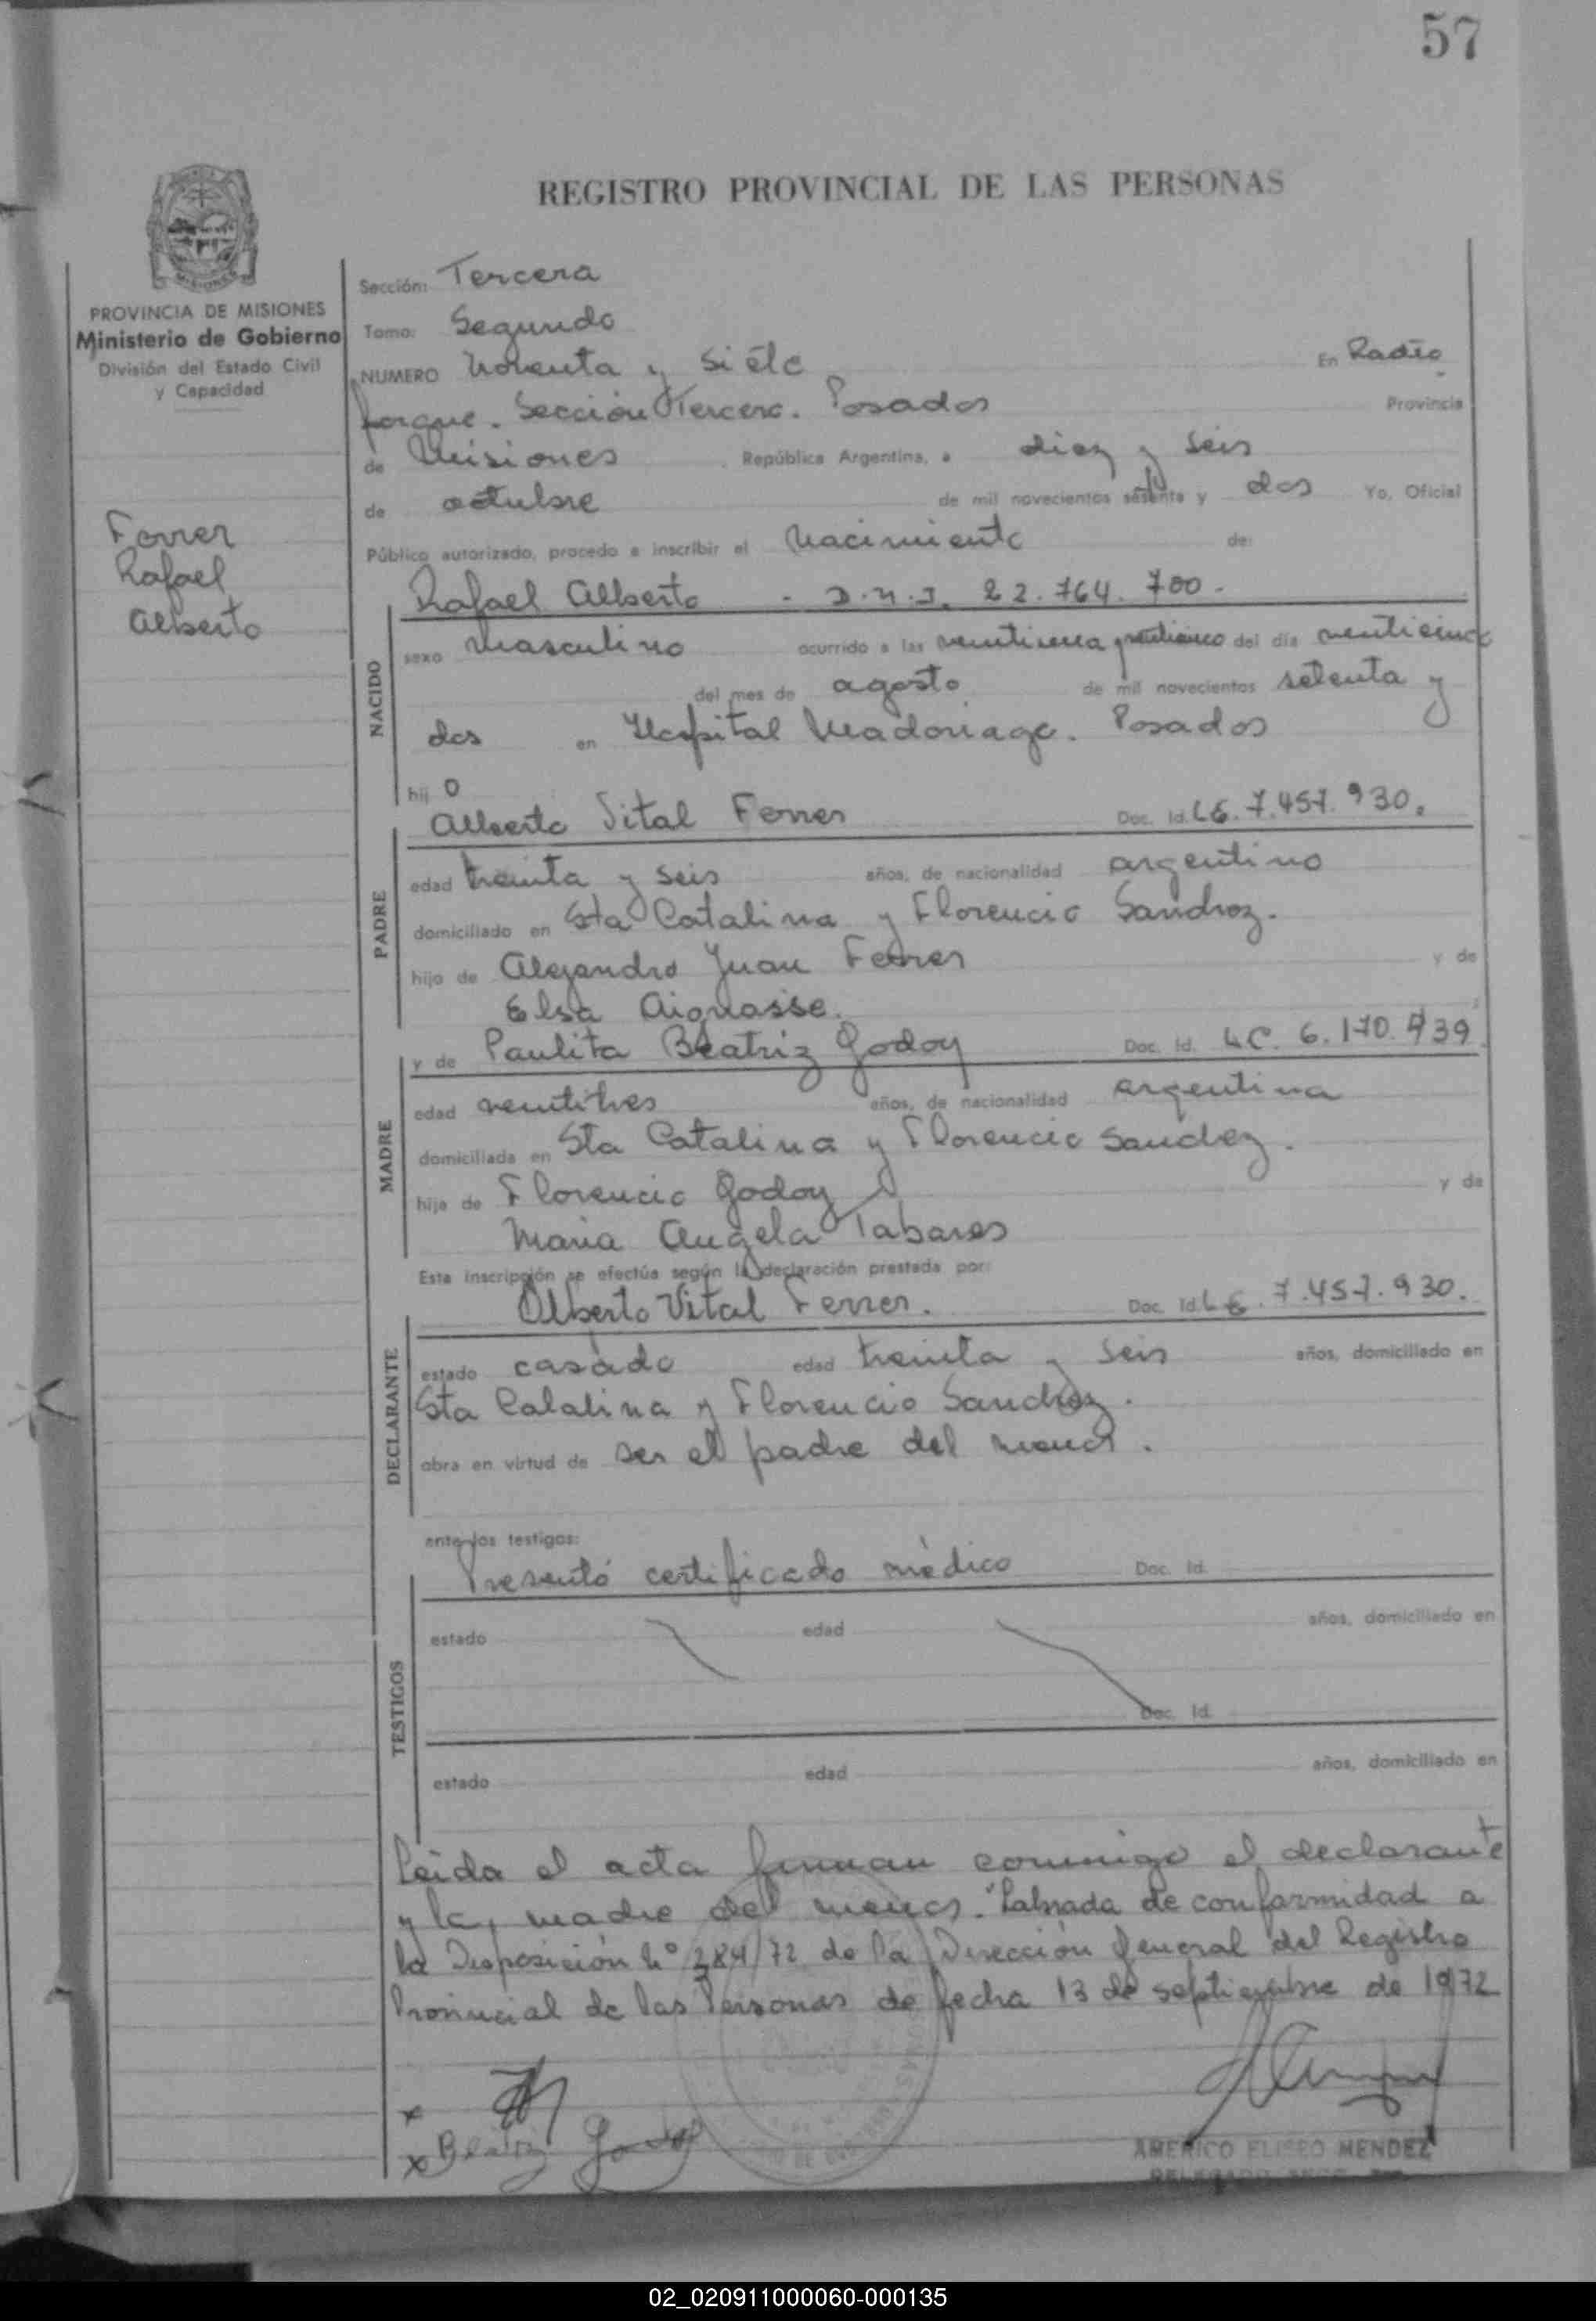 57
REGISTRO PROVINCIAL DE LAS PERSONAS
MISIONES
PROVINCIA DE MISIONES
Ministerio de Gobierno
División del Estado Civil
y Capacidad
Ferrer
Rafael
Alberto
Sección: Tercera
Tomo: Segundo
NUMERO Noventa y Siete En Radio
parque. Sección Tercera. Posadas Provincia
de Misiones República Argentina, a diez y seis
de octubre de mil novecientos setenta y dos Yo, Oficial
Público autorizado, procedo a inscribir el Nacimiento de:
Rafael Alberto - D.N.I. 22.764.700.-
NACIDO
sexo Masculino ocurrido a las del día venticinco
del mes de agosto de mil novecientos setenta y
dos en Hospital Madariaga. Posadas
hij o
Alberto Vital Ferrer Doc. Id. LE. 7.457.930.
PADRE
edad treinta y seis años, de nacionalidad argentino
domiciliado en Sta Catalina y Florencio Sanchez.
hijo de Alejandro Juan Ferrer y de
Elsa
y de Paulita Beatriz Godoy Doc. Id. LC. 6.170.939
MADRE
edad ventitres años, de nacionalidad argentina
domiciliada en Sta Catalina y Florencio Sanchez.
hija de Florencio Godoy y de
Maria Angela Tabares
Esta inscripción se efectúa según la declaración prestada por:
Alberto Vital Ferrer. Doc. Id. LE. 7.457.930.
DECLARANTE
estado casado edad treinta y seis años, domiciliado en
Sta Catalina y Florencio Sanchez.
obra en virtud de ser el padre del menor.
ante los testigos:
Presentó certificado médico Doc. Id.
TESTIGOS
estado edad años, domiciliado en
Doc. Id.
estado edad años, domiciliado en
Leida el acta firman conmigo el declarante
y la madre del menor. Labrada de conformidad a
la Disposición Nº 384/72 de la Dirección General del Registro
Provincial de las Personas de fecha 13 de septiembre de 1972
x
x Beatriz Godoy
AMERICO ELISEO MENDEZ
02_020911000060-000135